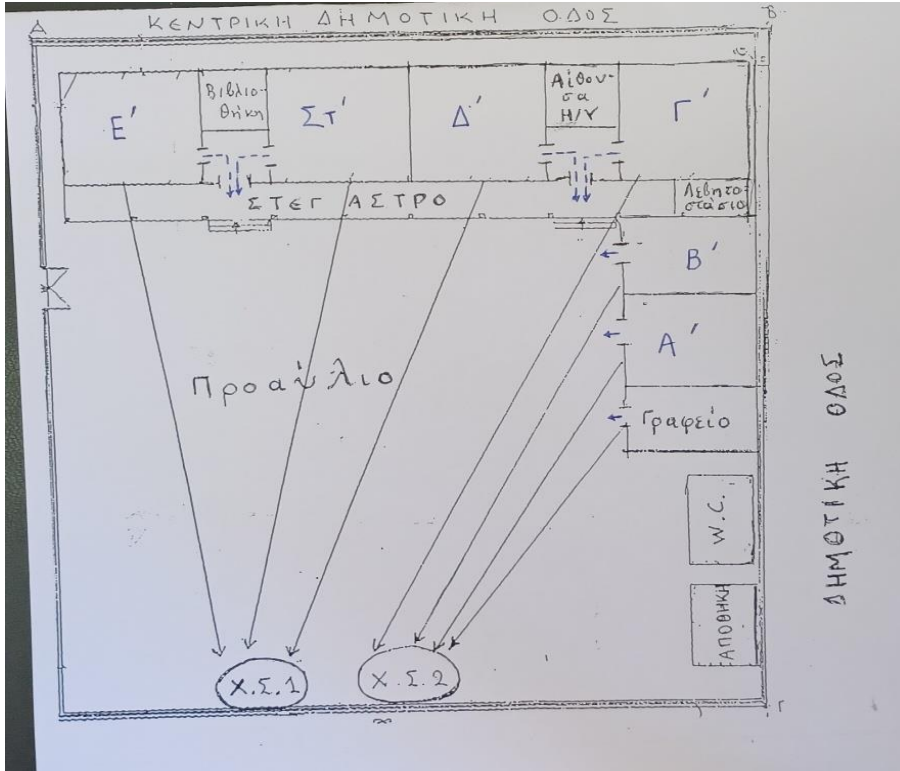 Α ΚΕΝΤΡΙΚΗ ΔΗΜΟΤΙΚΗ ΟΔΟΣ Β
Ε΄
Βιβλιο-
θήκη
Στ΄
Δ΄
Αίθου-
σα
Η/Υ
Γ΄
ΣΤΕΓΑΣΤΡΟ
Λεβητο-
στάσιο
Β΄
Α΄
Προαύλιο
Γραφείο
W.C.
ΑΠΟΘΗΚΗ
ΔΗΜΟΤΙΚΗ ΟΔΟΣ
Χ.Σ.1
Χ.Σ.2
Γ